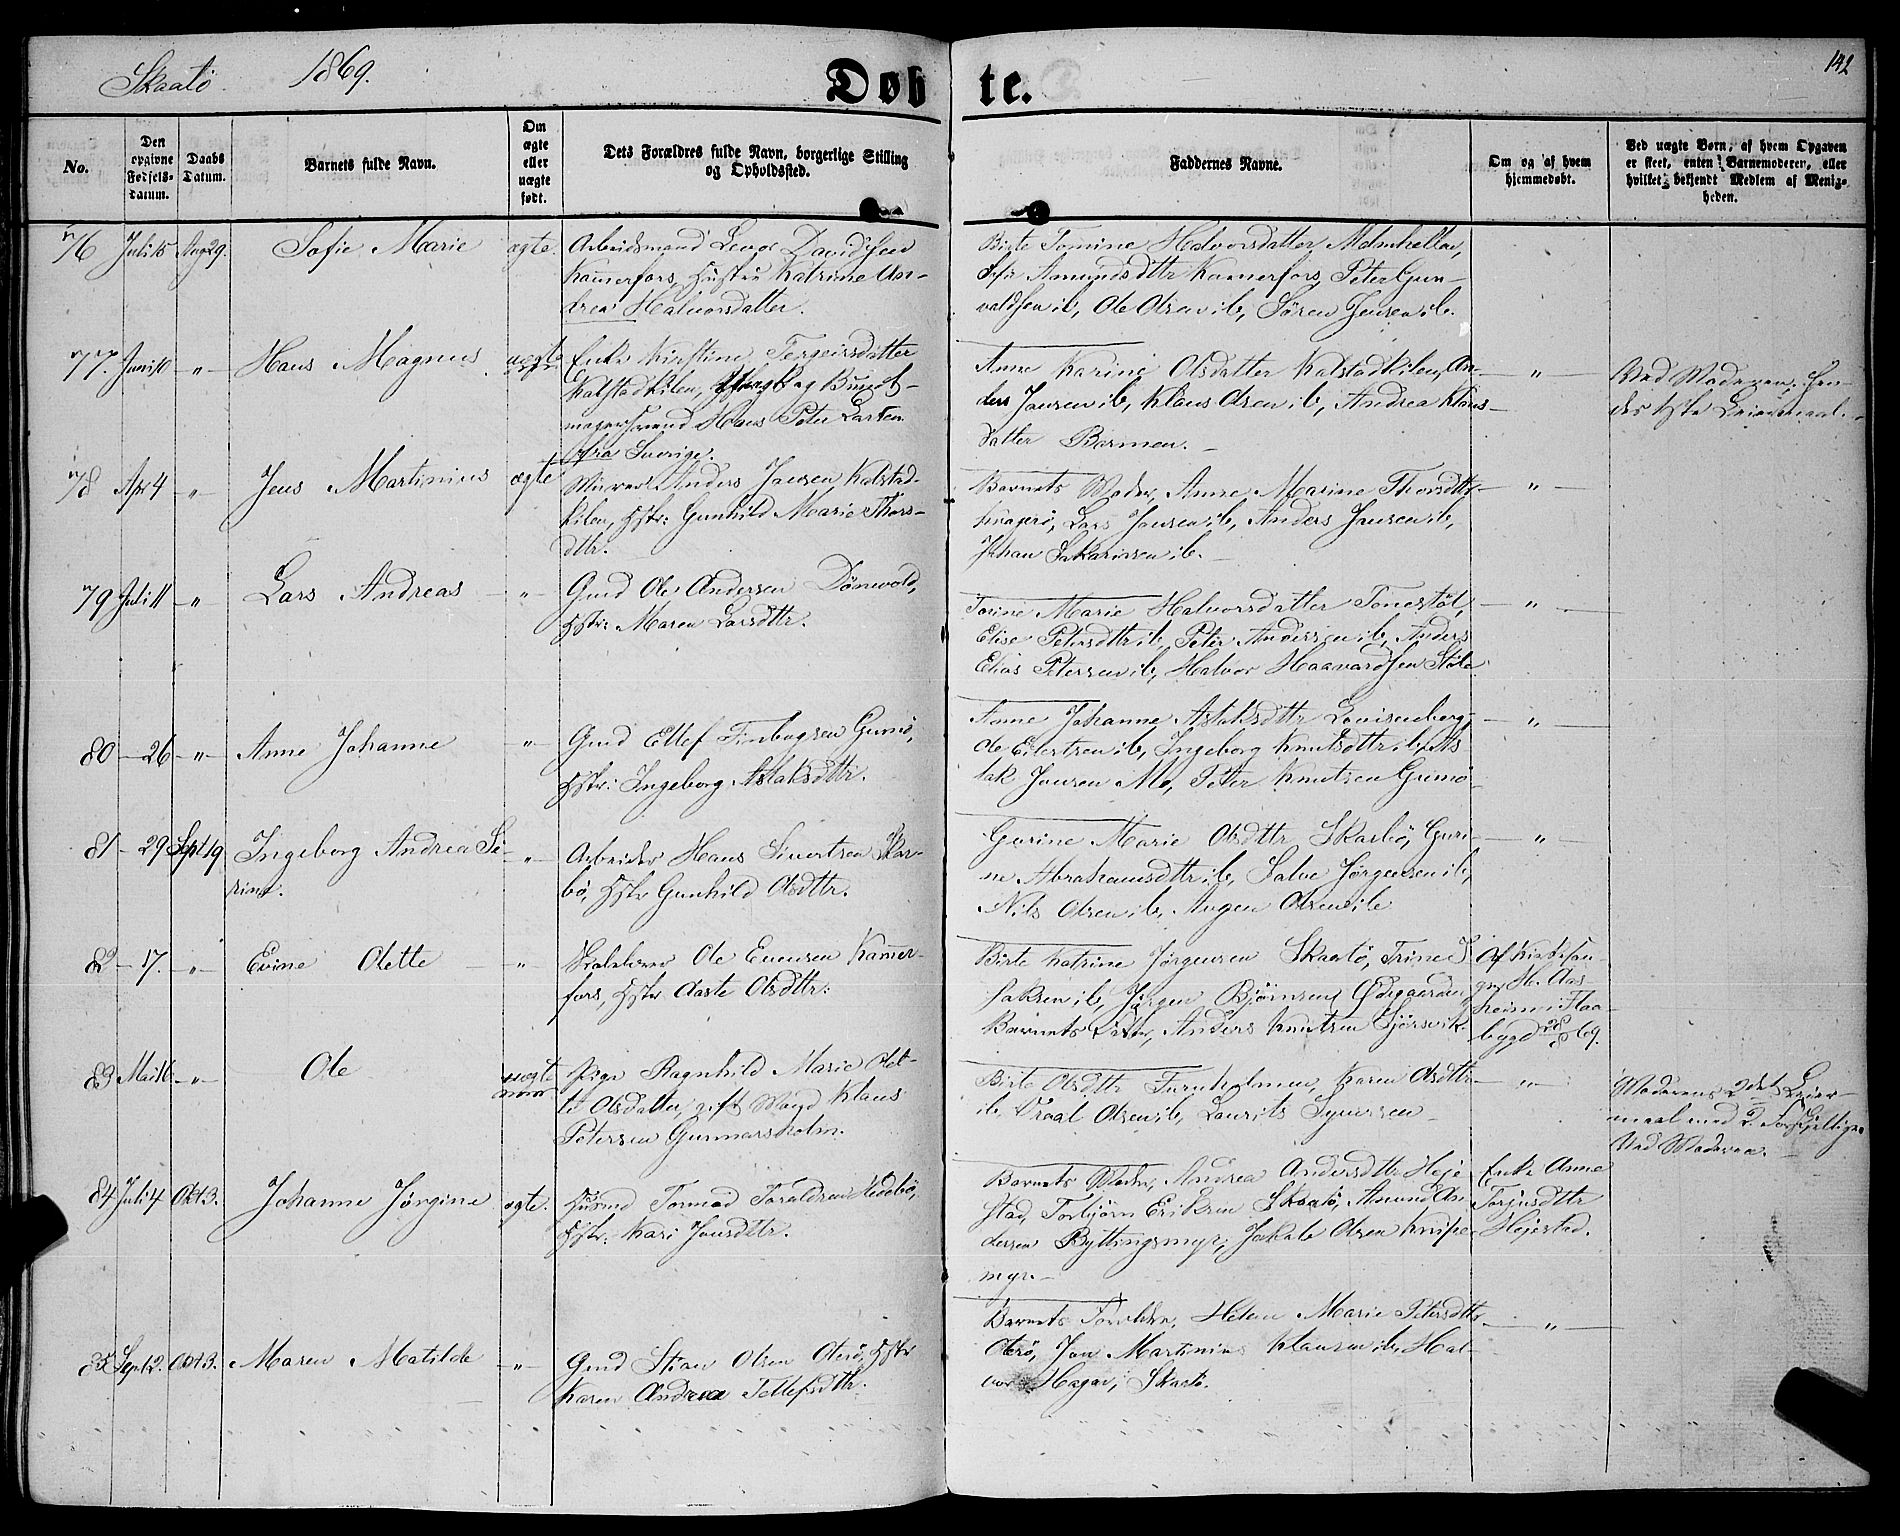 Skaatø. 1869.
Døbte.
142
No.
Den opgivne Fødsels-Datum.
Daabs Datum.
Barnets fulde Navn.
Om ægte eller uægte født.
Dets Forældres fulde Navn, borgerlige Stilling og Opholdssted.
Faddernes Navne.
Om og af hvem hjemmedøbt.
Ved uægte Børn, af hvem Opgaven er skeet, enten Barnemoderen, eller hvilket bekjendt Medlem af Menigheden.
76 Juli 15 Aug 29. Sofie Marie ægte. Arbeidsmand Davidsen
Kammerfors, Hustru Katrine An-
drea Halvorsdatter.
Birte Tomine Halvorsdatter
Amundsdttr Kammerfors, Peter Gun-
valdsen ib, Ole Olsen ib, Søren Jensen ib.
77. Juni 10 " Hans Magnus uægte Enke Kirstine Tergeirsdatter
Kalstadkilen, og
magersvend Hans Peter Larsen
fra Sverige.
Anne Karine Olsdatter Kalstadkilen, An-
ders Jansen ib, Klaus Olsen ib, Andrea Klaus-
datter Barmen.
"
Ved Moderen. Hen-
des 1ste Leiermaal.
78 Apr 4 " Jens Martinius ægte Anders Jansen Kalstad-
kilen, Hstr: Gunhild Marie Thors-
dttr.
Barnets Moder, Anne Marine Thorsdttr
Lars Jansen ib, Anders Jansen ib,
Johan Sakarissen ib.
"
79 Juli 11 " Lars Andreas " Gmd Ole Andersen Dønevold,
Hstr: Maren Larsdttr.
Torine Marie Halvorsdatter Tonestøl,
Elise Petersdttr ib, Peter Andersen ib, Anders
Elias Petersen ib, Halvor Haavardsen Støle
"
80 - 26 " Anne Johanne " Gmd Ellef Finbogsen Gumø,
Hstr: Ingeborg Aslaksdttr.
Anne Johanne Aslaksdttr Louisenberg,
Eilertsen ib, Ingeborg Knutsdttr ib, As
lak Jansen Mo, Peter Knutsen Gumø
"
81 - 29 Sept 19 Ingeborg Andrea Se-
rine.
" Arbeider Hans Sivertsen Skar-
bø, Hstr Gunhild Olsdttr.
Gurine Marie Olsdttr Skarbø, Guri-
ne Abrahamsdttr ib, Salve Jørgensen ib,
Nils Olsen ib, Olsen ib
"
82 - 17. " Evine Olette " Skolelærer Ole Evensen Kammer-
fors, Hstr Aaste Olsdttr.
Birte Katrine Jørgensen Skaatø, Trine I
saksen ib, Jørgen Bjørnsen Ødegaarden
Barnets Fader, Anders Knutsen
Af Kirkesan-
ger H. Aas-
heim i Flaa-
bygd 28/8 69.
83 Mai 16 " Ole uægte Pige Ragnhild Marie Olet-
te Olsdatter, gift Mand Klaus
Petersen Gunmarsholm.
Birte Olsdttr Furuholmen, Karen Olsdttr
ib. Olsen ib, Laurits Syversen
"
Moderens 2det Leier-
maal med 2 Forskjellige.
Ved Moderen.
84 Juli 4 Okt 3. Johanne Jørgine ægte. Husmd Tormod Taraldsen Hedebø,
Hstr: Kari Jansdttr.
Barnets Moder, Andrea Andersdttr Heje-
stad, Torbjørn Eriksen Skaatø, Amund An
dersen Byttingsmyr, Jakob Olsen Knipe
myr.
Enke Anne
Torjusdttr
Hejestad.
85 Sept 12. Okt 3. Maren Matilde " Gmd Stian Olsen Oterø, Hstr
Karen Andrea Tellefsdttr.
Barnets Forældre, Helene Marie Petersdttr
Oterø, Jan Martinius Klausen ib, Hal-
vor Hagen, Skaatø.
"